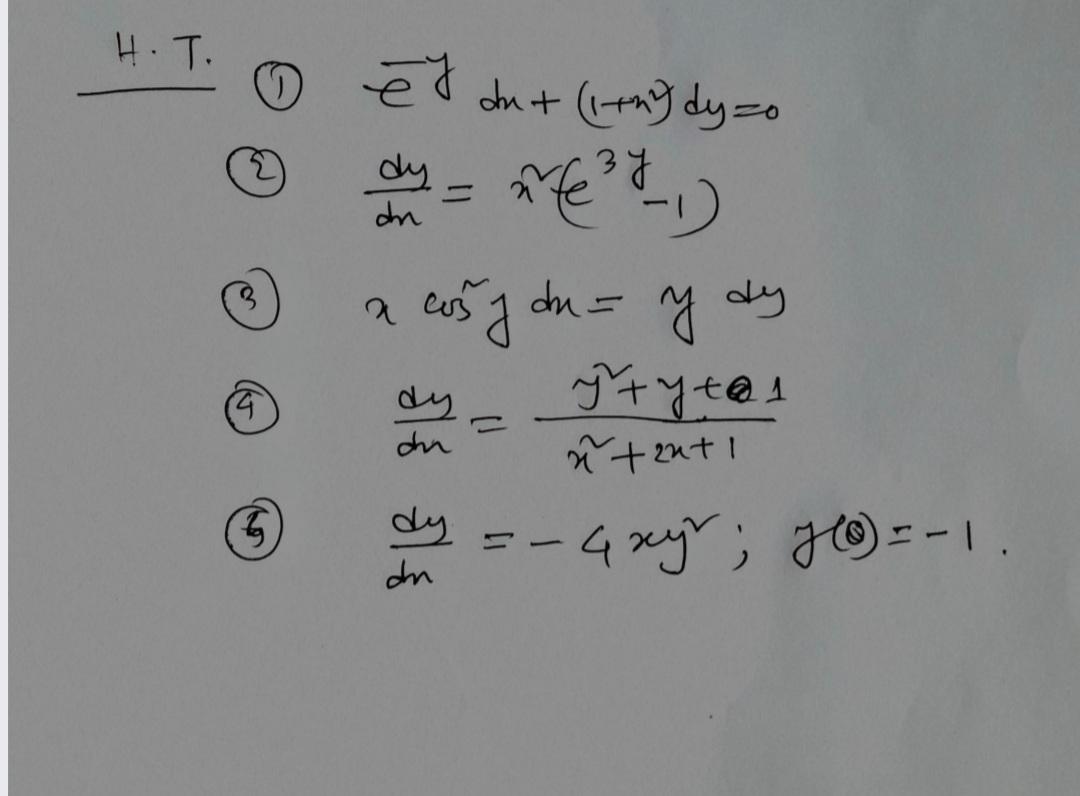 H. T. ① e^-y dx + (1+x²) dy = 0
② dy/dx = x²(e^3y - 1)
③ x cos²y dx = y dy
④ dy/dx = (y² + y + 1)/(x² + 2x + 1)
⑤ dy/dx = -4xy² ; y(0) = -1.